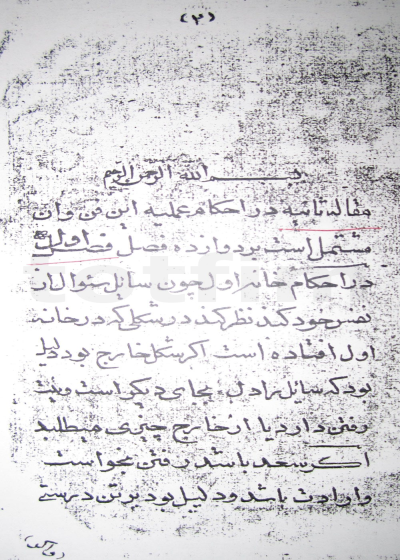 (۲)
بسم الله الرحمن الرحیم
مقاله ثانیه در احکام عملیه این فن و آن
مشتمل است بر دوازده فصل فصل اول
در احکام خانه اول چون سایل سئوال از
نفس خود کند نظر کند در شکلی که در خانه
اول افتاده است اکر شکل خارج بود دلیل
بود که سایل را دل بجای دیکر است و نیت
رفتن دارد یا از خارج چیزی میطلبد
اکر سعد باشد رفتن نحو است
و ارادت باشد و دلیل بود بر تن درستی